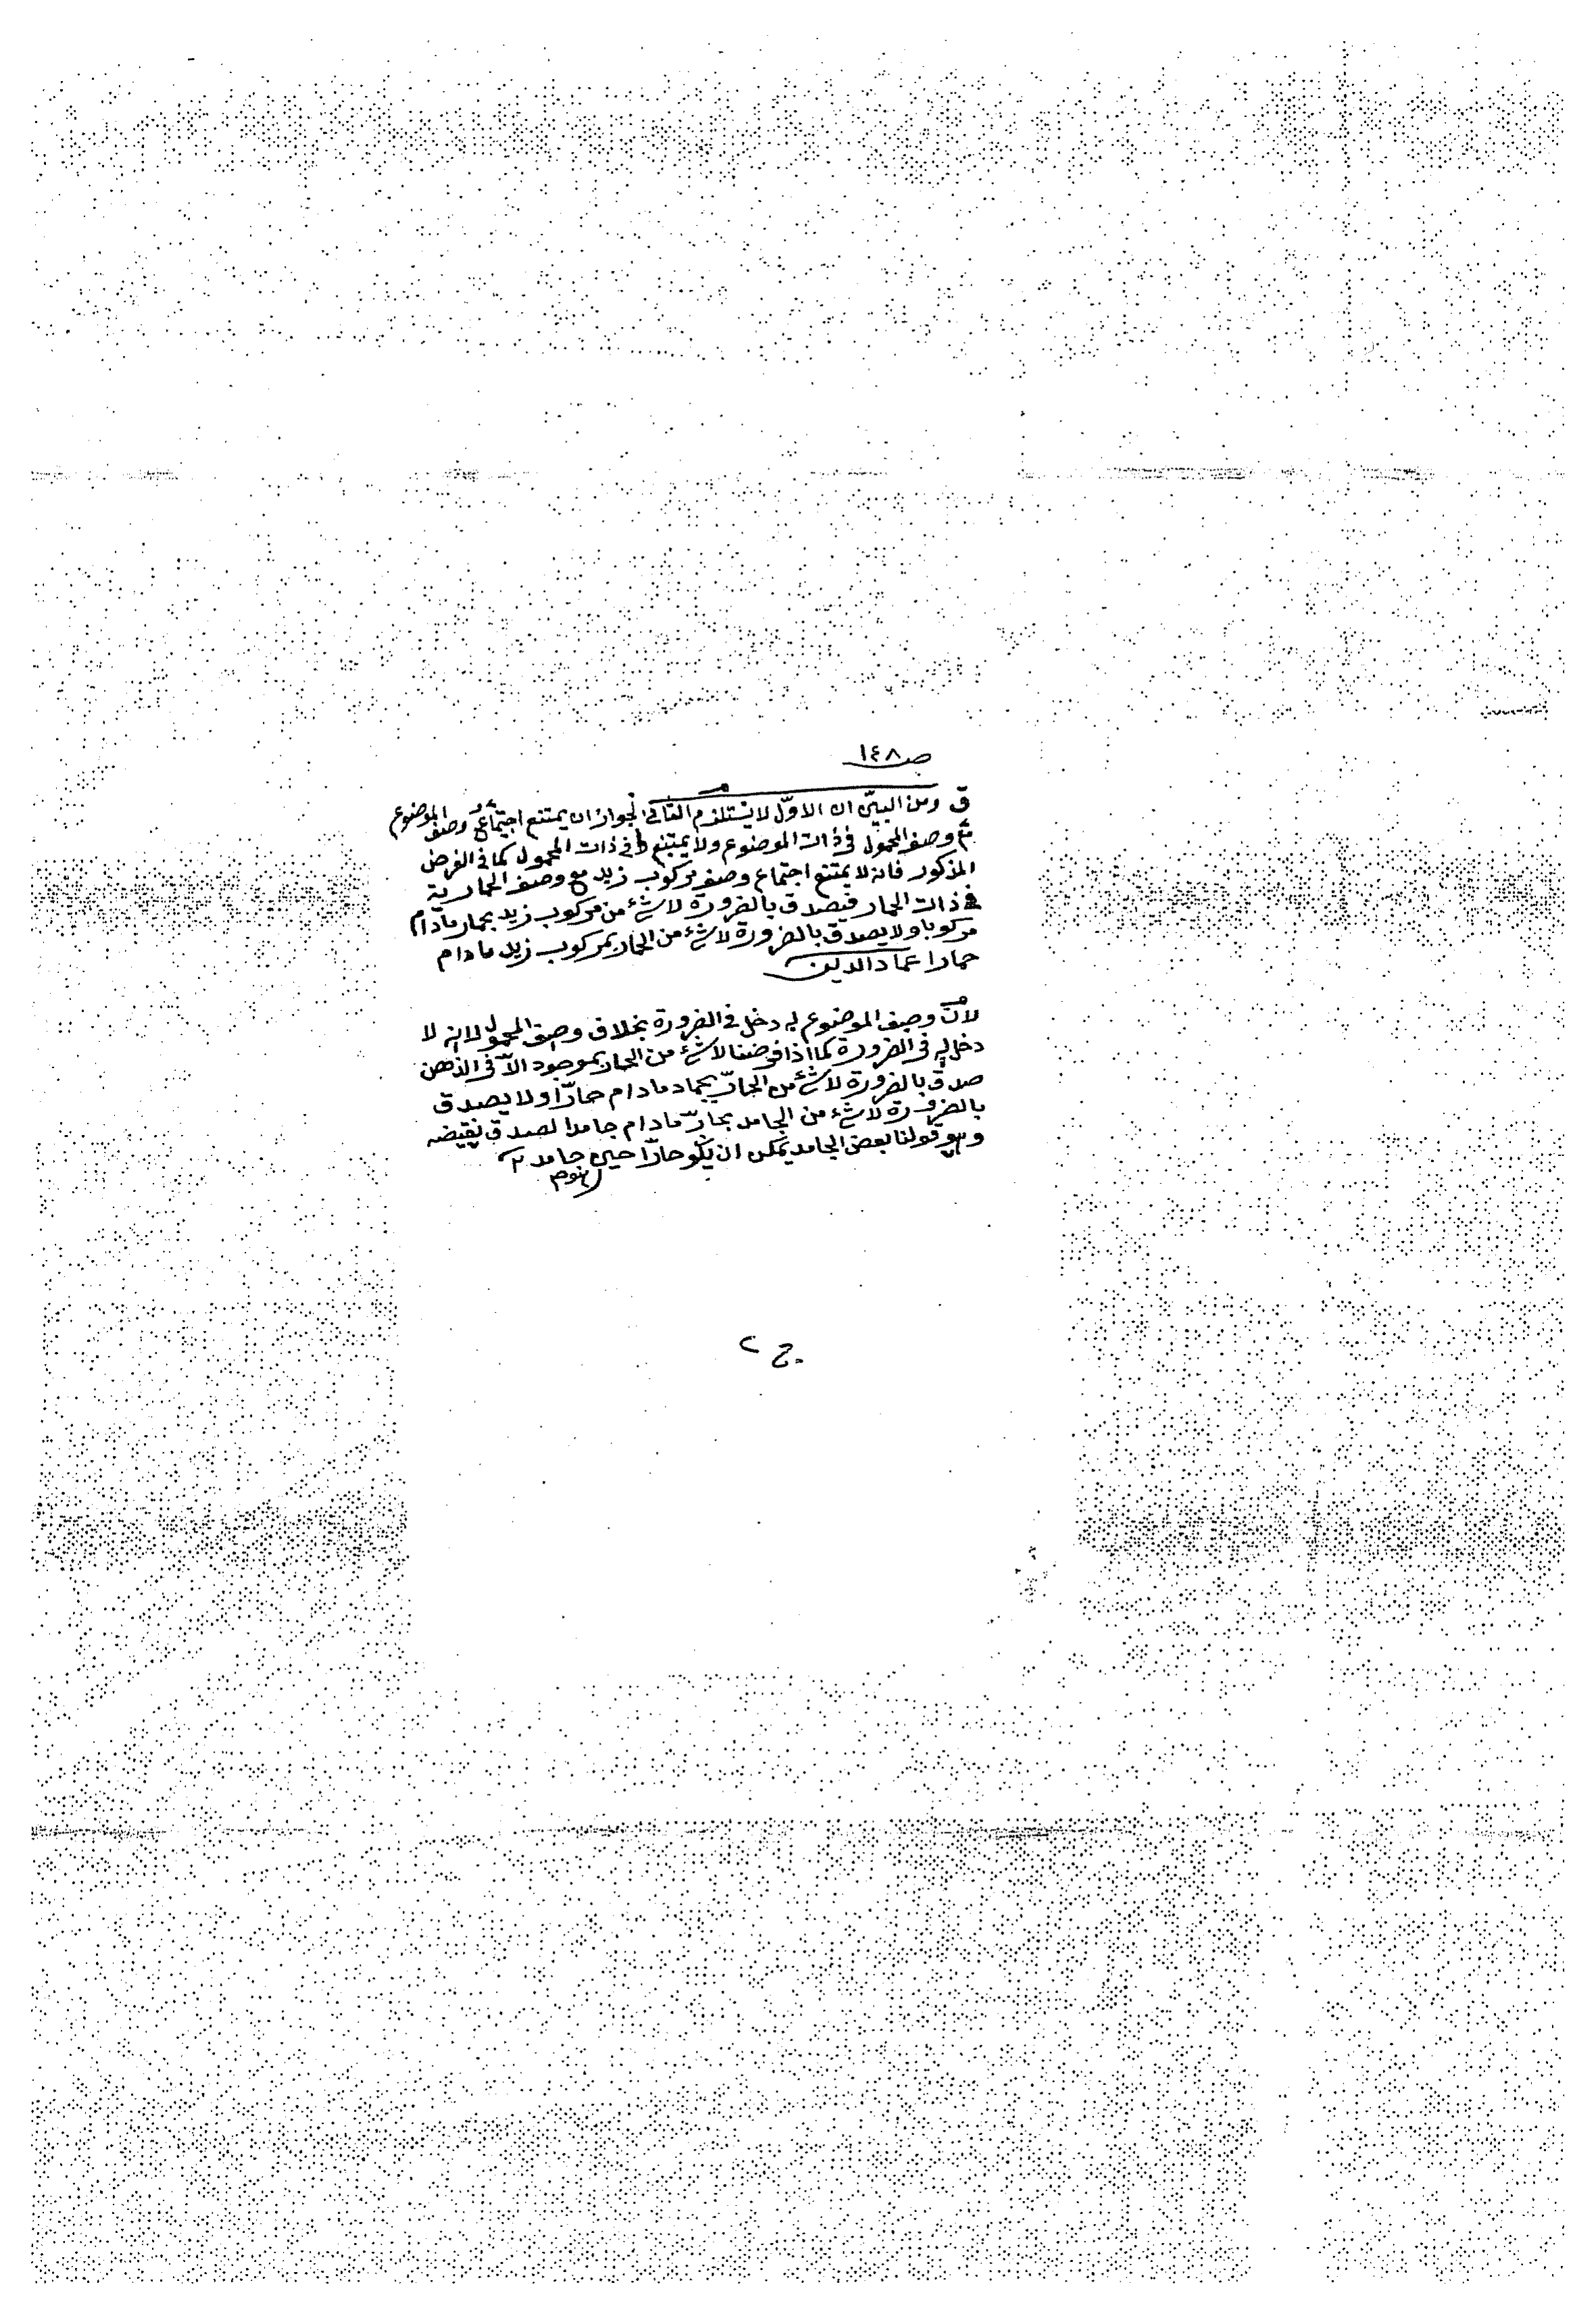 صـ ١٤٨
ق ومن البيّن ان الاوّل لا يستلزم الثانى لجواز ان يمتنع اجتماع وصف الموضوع
مع وصف المحمول فى ذات الموضوع ولا يمتنع فى ذات المحمول كما فى الفرض
المذكور فانه لا يمتنع اجتماع وصف مركوب زيد مع وصف الحمارية
فى ذات الحمار فيصدق بالضرورة لا شئ من مركوب زيد بحمار مادام
مركوبا ولا يصدق بالضرورة لا شئ من الحمار بمركوب زيد مادام
حمارا عماد الدين
لانّ وصف الموضوع له دخل فى الضرورة بخلاف وصف المحمول لانه لا
دخل له فى الضرورة كما اذا فرضنا لا شئ من الحار بموجود الّا فى الذهن
صدق بالضرورة لا شئ من الحارّ بجامد مادام حارّا ولا يصدق
بالضرورة لا شئ من الجامد بحارّ مادام جامدا لصدق نقيضه
وهو قولنا بعض الجامد يمكن ان يكو حارّا حين جامد